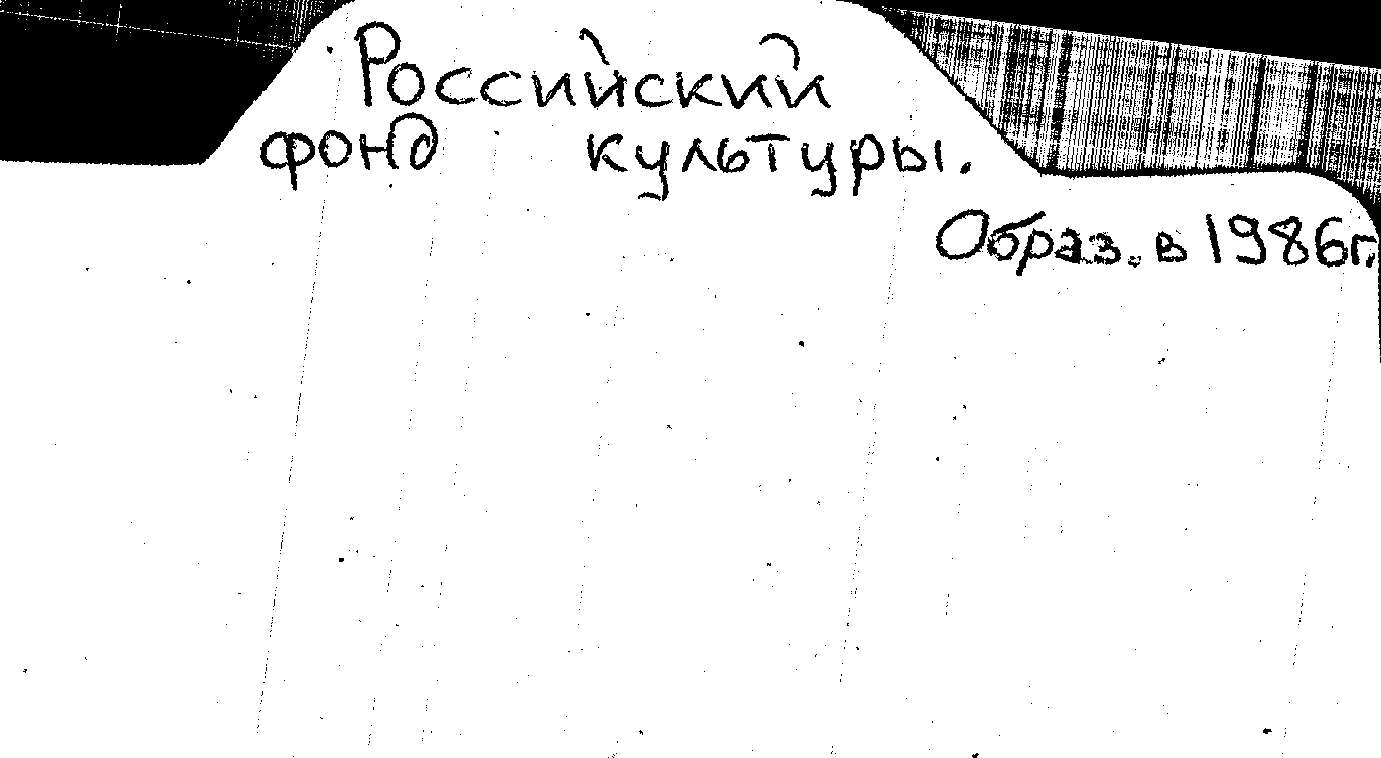 Российский
фонд культуры.
Образ. в 1986г.